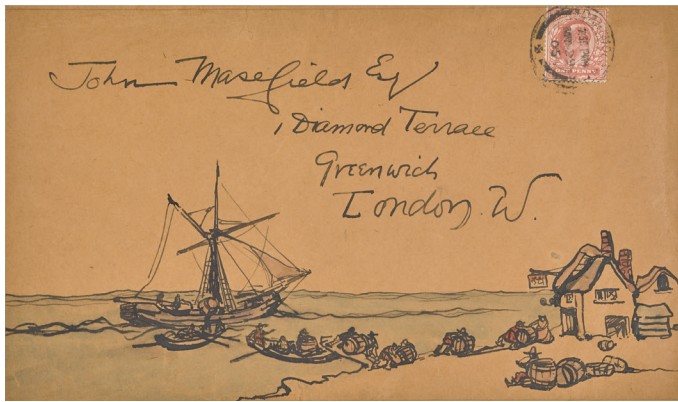 John Masefield Esq
1 Diamond Terrace
Greenwich
London. W.
ONE PENNY